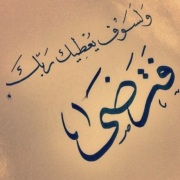 وَلَسَوْفَ يُعْطِيكَ رَبُّكَ
فَتَرْضَى